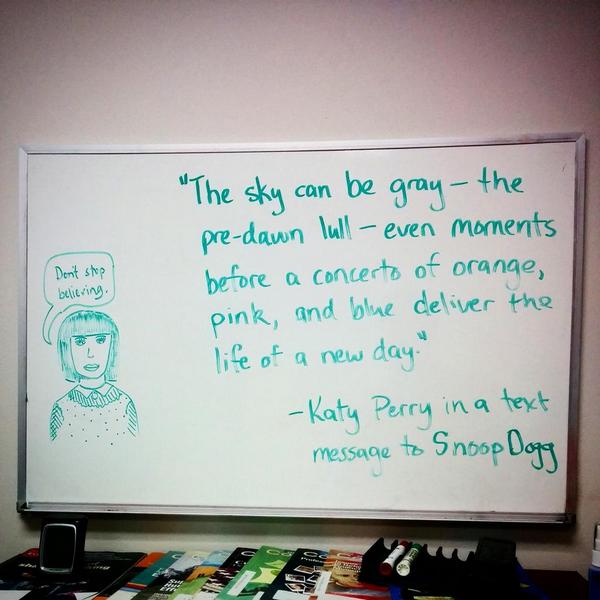 Don't stop
believing.
"The sky can be gray – the
pre-dawn lull – even moments
before a concerto of orange,
pink, and blue deliver the
life of a new day."
-Katy Perry in a text
message to Snoop Dogg